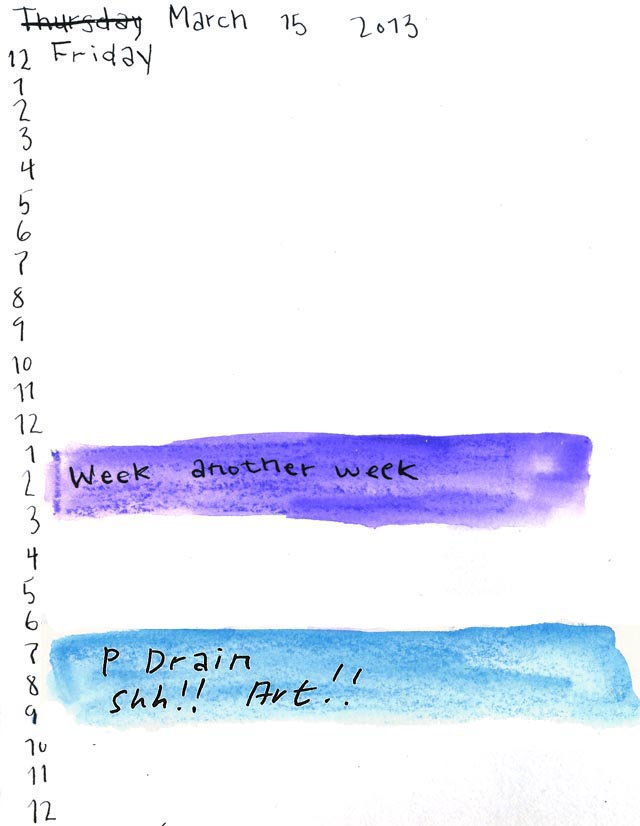 Thursday March 15 2013
12 Friday
1
2
3
4
5
6
7
8
9
10
11
12
1
Week another week
2
3
4
5
6
7
P Drain
8
Shh!! Art!!
9
10
11
12